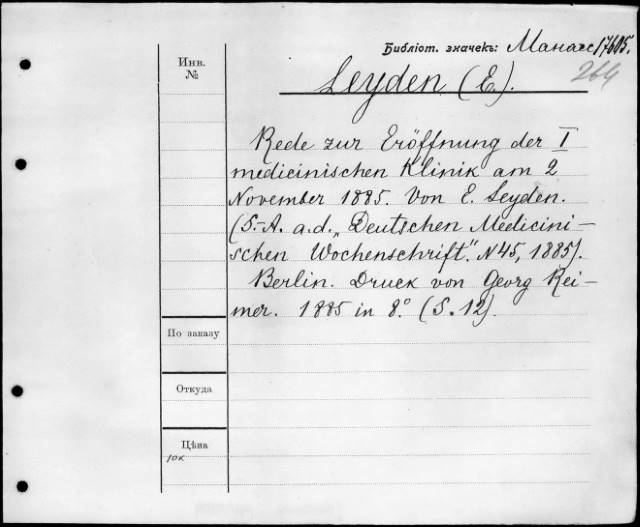 Библіот. значекъ: Манасс 17605.
264
Инв.
№
Leyden (E.).
Rede zur Eröffnung der I
medicinischen Klinik am 2
November 1885. Von E. Leyden.
(S.-A. a. d. „Deutschen Medicini-
schen Wochenschrift." N 45, 1885).
Berlin. Druck von Georg Rei-
mer. 1885 in 8.° (S. 12).
По заказу
Откуда
Цѣна
10к